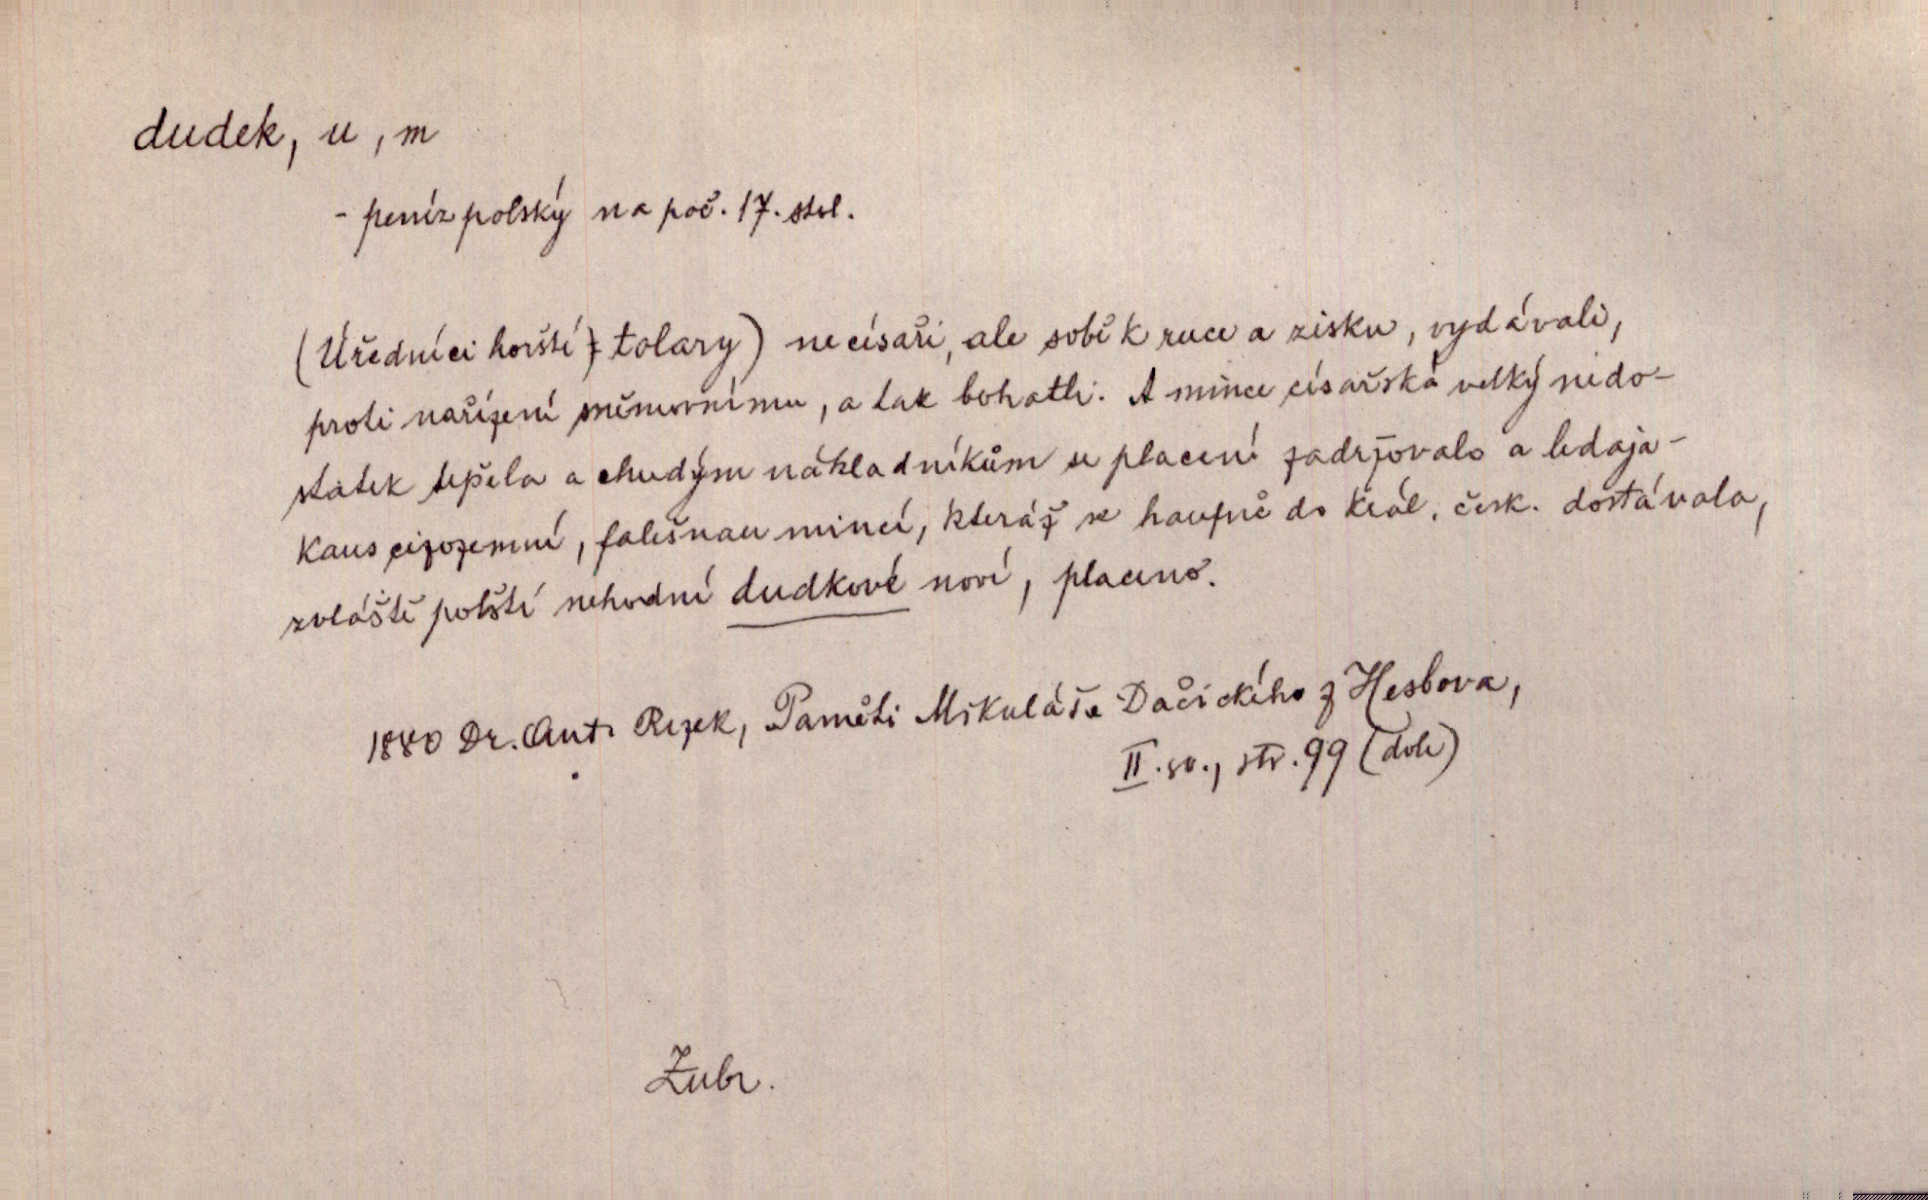 dudek, u, m
- peníz polský na poč. 17. stol.
(Úředníci horští) tolary) ne císaři, ale sobě k ruce a zisku, vydávali,
proti nařízení sněmovnímu, a tak bohatli. A mince císařská velký nedo-
statek tepela a chudým nákladníkům se placení zadržovalo a ledaja-
kaus cizozemní, falešnau mincí, kteráž se haufně do král. česk. dostávala,
zvláště polští nehodní dudkové noví, placeno.
1880 Dr. Ant. Rezek, Paměti Mikuláše Dačického z Heslova,
II. sv., str. 99 (dole)
Zubr.